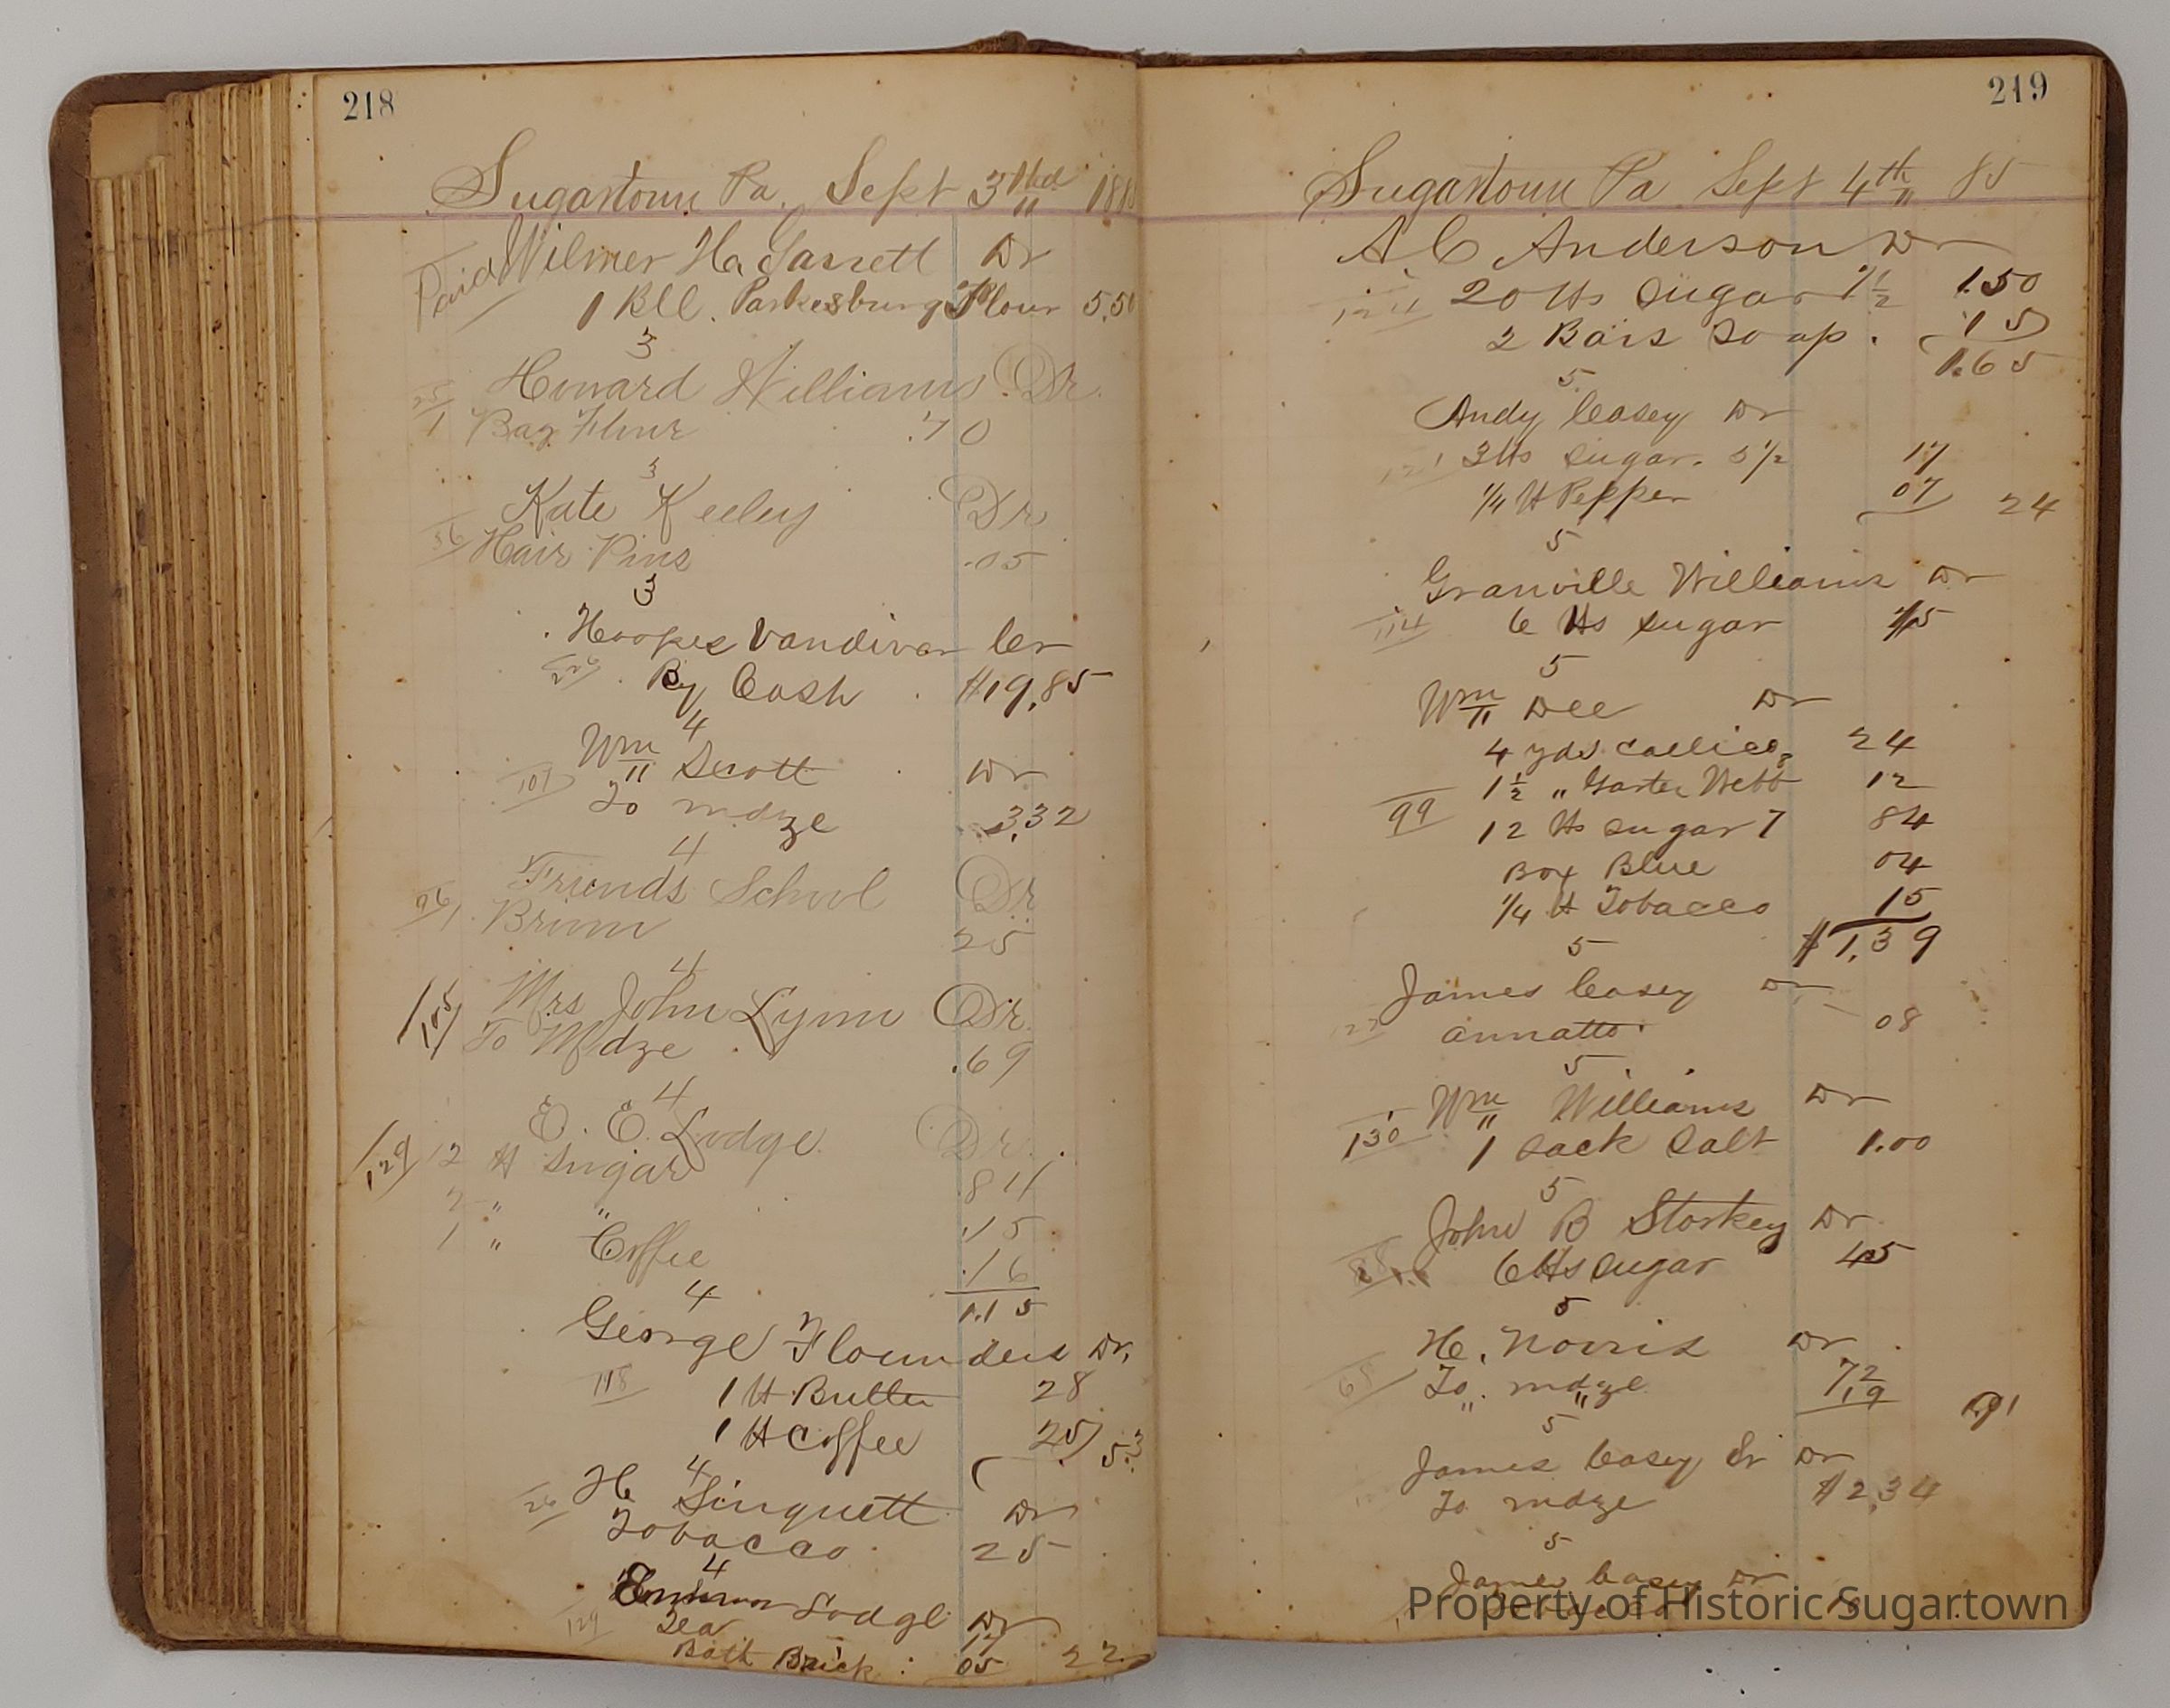 218
Sugartown Pa. Sept 3rd 188
Paid Wilmer Garrett Dr
1 Bll. Parkesburg Flour 5.50
3
Howard Williams Dr.
1 Bag Flour .70
3
Kate Keeley Dr
56 Hair Pins .05
3
Hoopes Vandivar Cr
By Cash $19.85
4
Wm Scott Dr
107 To mdze 3.32
4
Friends School Dr
96 1 Broom 25
4
Mrs John Lynn Dr.
105 To Mdze .69
4
E. E. Lodge Dr.
129 12 lb Sugar .84
2 " " .15
1 " Coffee .16
1.15
4
George Flounders Dr.
118 1 lb Butter 28
1 lb Coffee 25 53
4
H Linquett Dr
26 Tobacco 25
4
Emmor Lodge Dr
129 Tea 17
Bath Brick : 05 22
219
Sugartown Pa Sept 4th 85
A C Anderson Dr
124 20 lbs Sugar 7 1/2 1.50
2 Bars Soap . 15
1.65
5
Andy Casey Dr
3 lbs Sugar. 5 1/2 17
1/4 lb Pepper 07 24
5
Granville Williams Dr
114 6 lbs Sugar 45
5
Wm Dee Dr
4 yds Callico 24
1 1/2 " Garter Webb 12
99 12 lbs Sugar 7 84
Box Blue 04
1/4 lb Tobacco 15
$1.39
5
James Casey Dr
annatto 08
5
Wm Williams Dr
130 1 Sack Salt 1.00
5
John B Storkey Dr
6 lbs Sugar 45
5
H. Norris Dr
68 To mdze 72
" " 19 .91
5
James Casey Sr Dr
To mdze $2.34
5
James Casey Dr
Property of Historic Sugartown